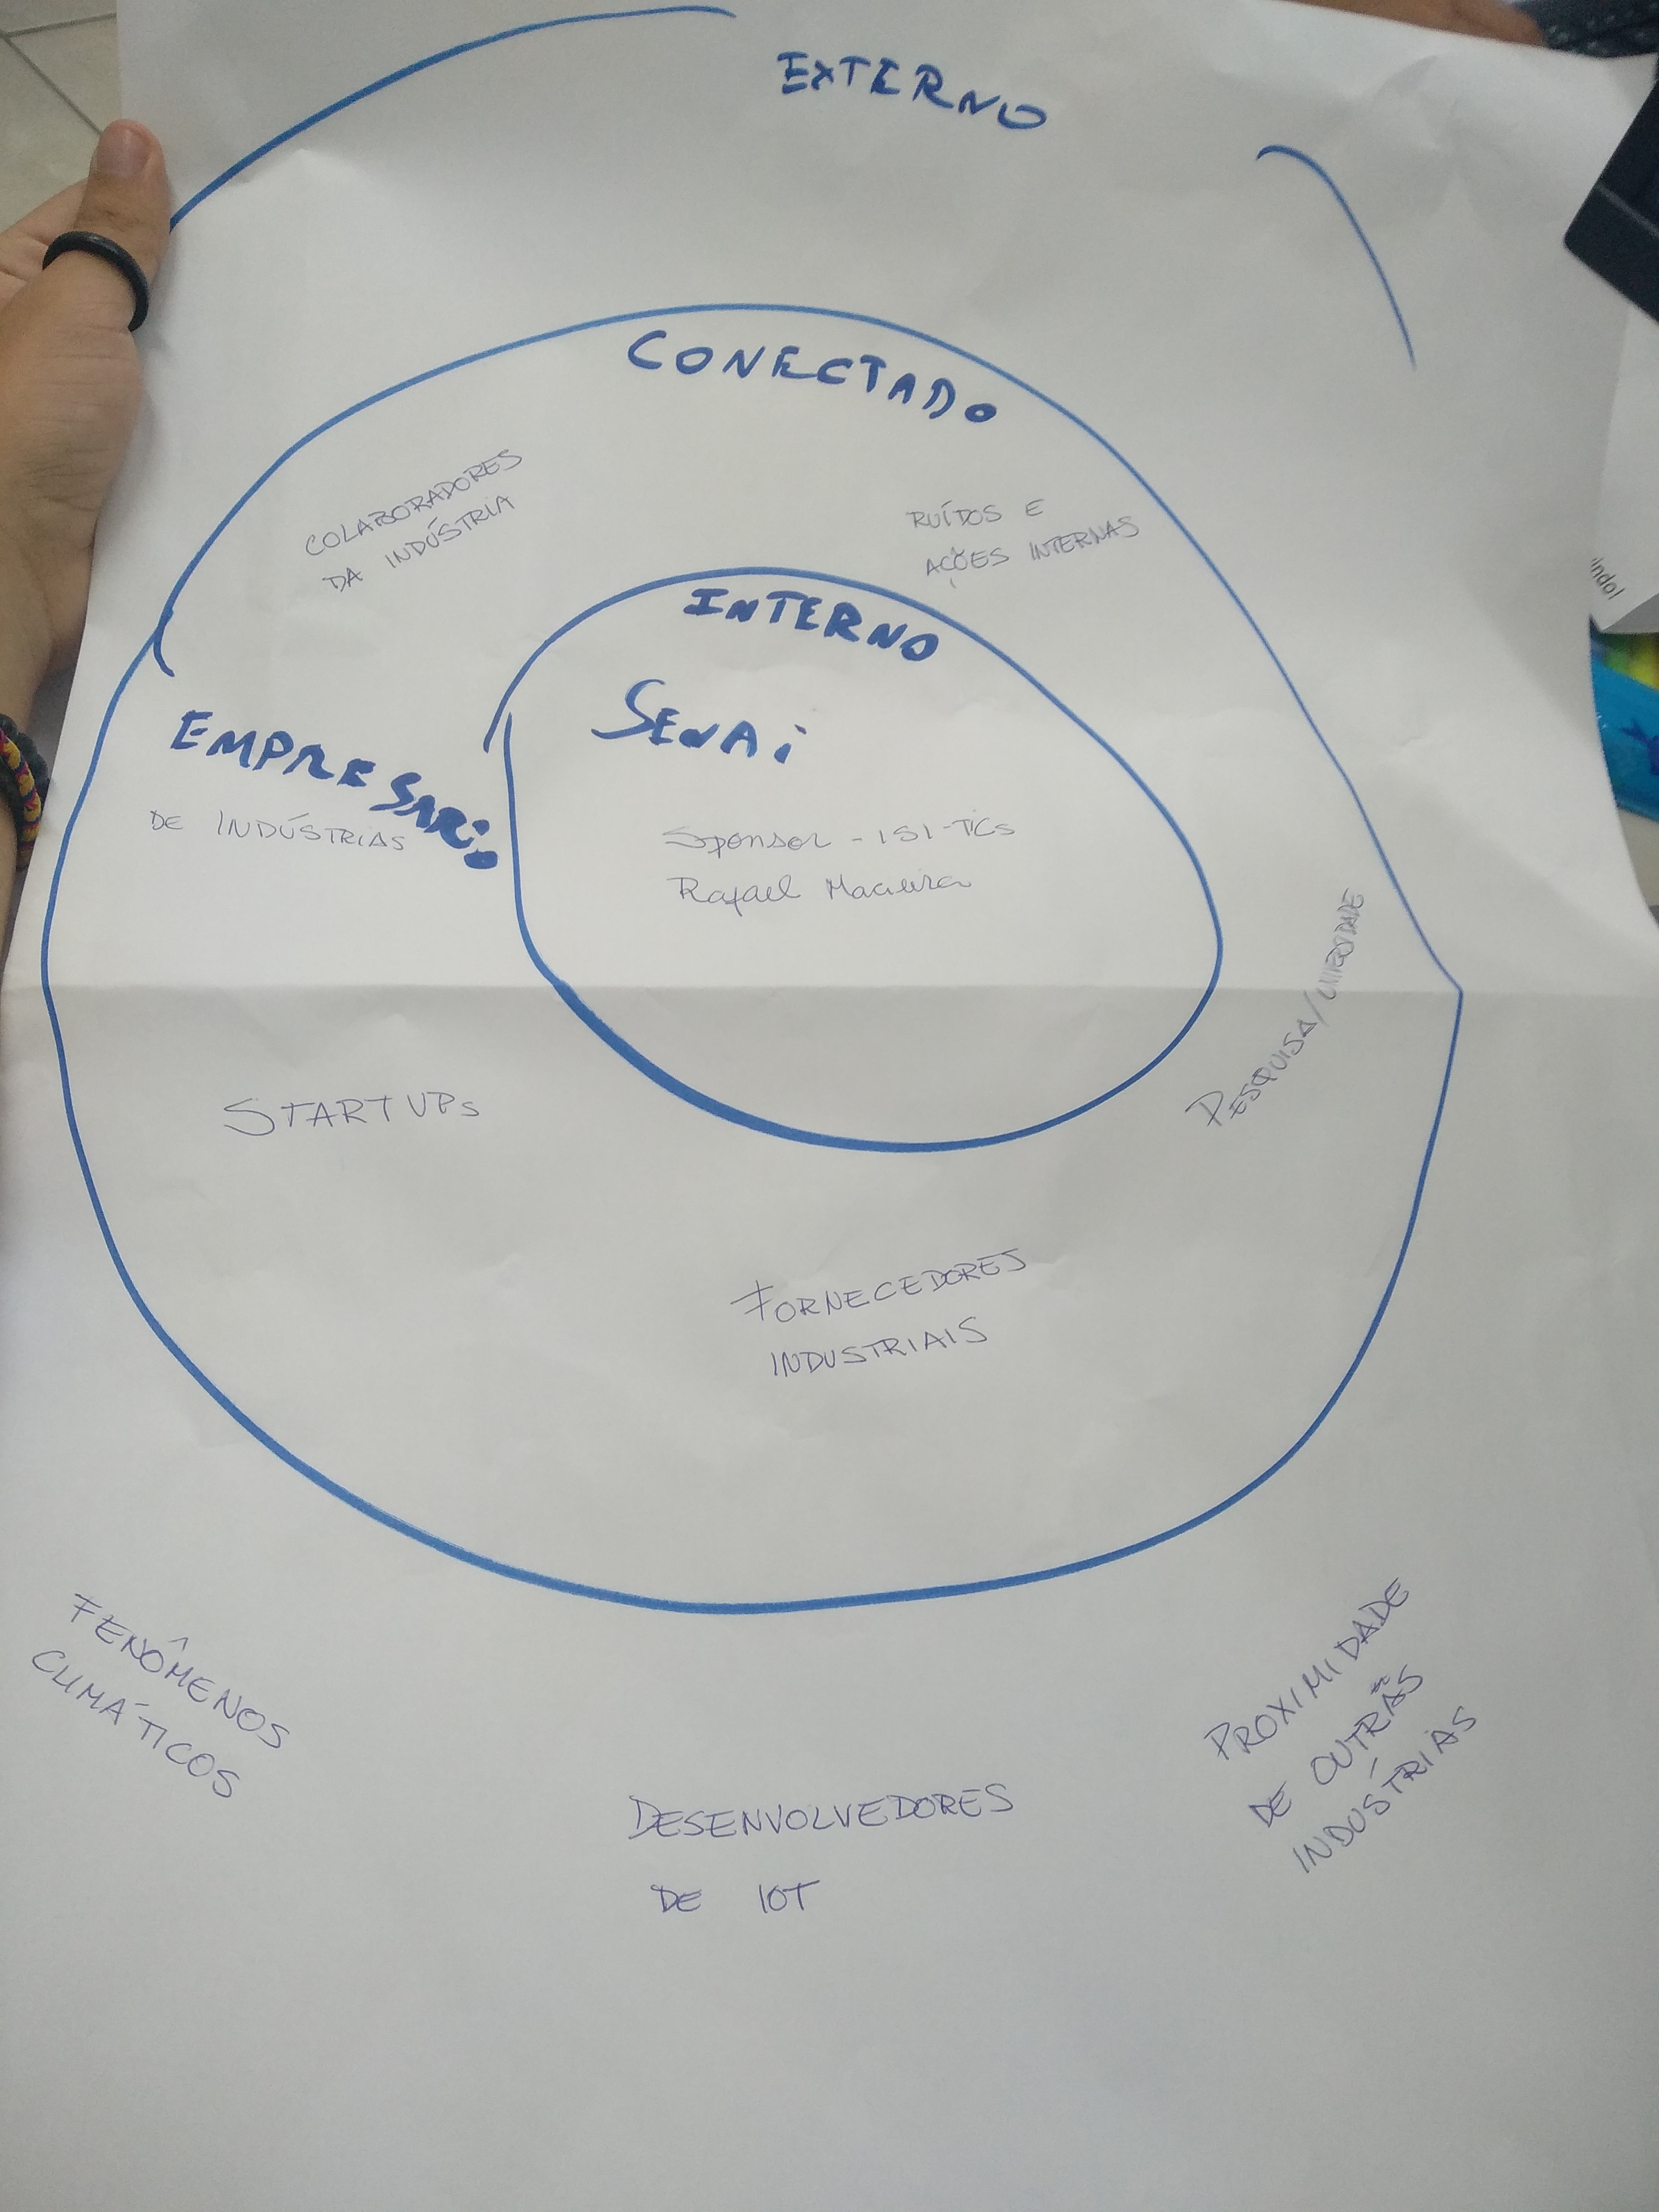 EXTERNO
CONECTADO
COLABORADORES
DA INDÚSTRIA
RUÍDOS E
AÇÕES INTERNAS
INTERNO
SENAi
EMPRESARIO
DE INDÚSTRIAS
Sponsor - ISI-TICs
Rafael Macieira
PESQUISA/UNIVERSIDADE
STARTUPs
FORNECEDORES
INDUSTRIAIS
FENÔMENOS
CLIMÁTICOS
PROXIMIDADE
DE OUTRAS
INDÚSTRIAS
DESENVOLVEDORES
DE IOT
indol